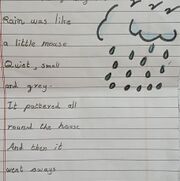 Rain was like
a little mouse
Quiet, small
and grey.
It pattered all
round the house
And then it
went aways